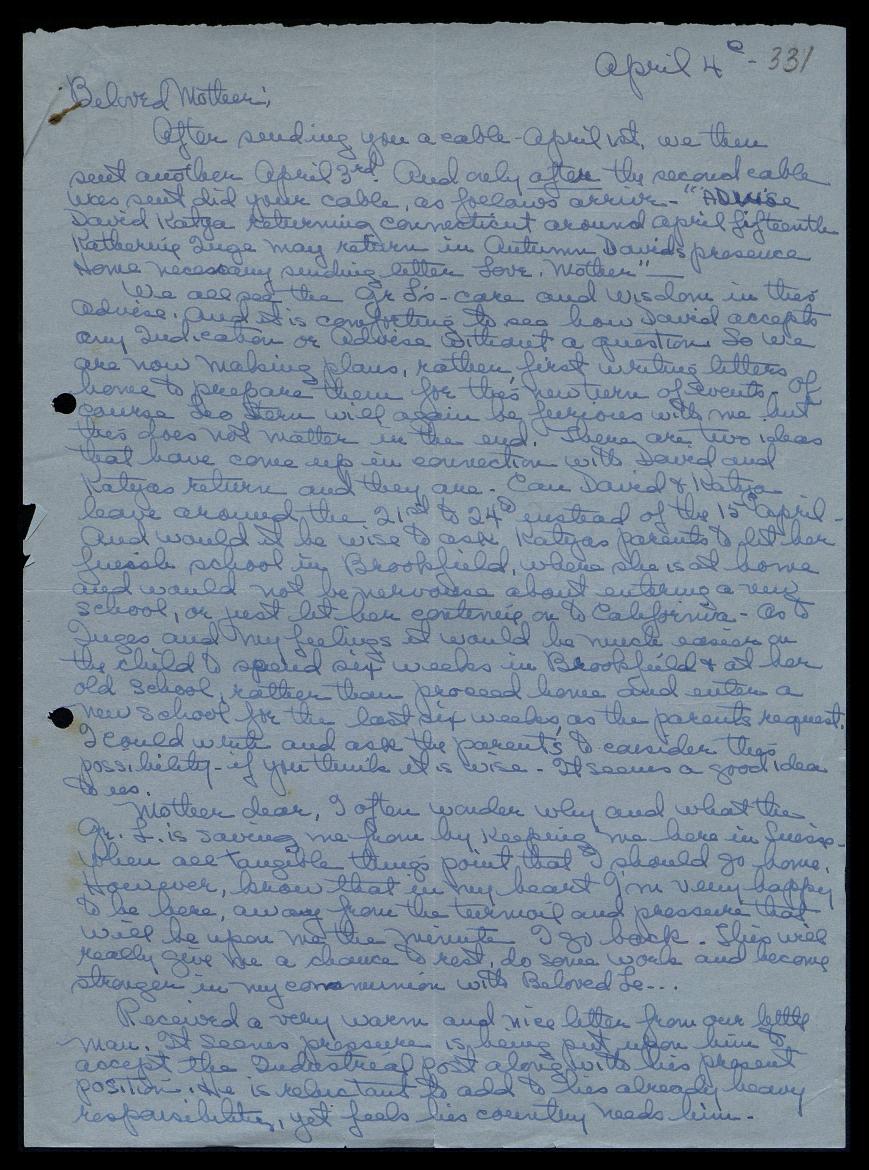 April 4e - 331
Beloved Mother;
After sending you a cable - April 1st, we then
sent another April 3rd. And only after the second cable
was sent did your cable, as follows arrive - "Advise
David Katya returning Connecticut around April fifteenth
Katherine Inge may return in Autumn Davids presence
Home necessary sending letter Love. Mother" —
We all see the Gr. L's - care and wisdom in this
advise. And it is comforting to see how David accepts
any Indication or Advise without a question. So we
are now making plans, rather first writing letters
home to prepare them for this new turn of Events. Of
course Leo Stern will again be furyous with me but
this does not matter in the end. There are two ideas
that have come up in connection with David and
Katyas return and they are - Can David & Katya
leave around the 21st to 24e instead of the 15e April -
And would it be wise to ask Katyas parents to let her
finish school in Brookfield, where she is at home
and would not be nervouse about entering a new
school, or just let her continue on to California - As to
Inges and my feelings it would be much easier on
the child to spend six weeks in Brookfield & at her
old school, rather than proceed home and enter a
new school for the last six weeks, as the parents request.
I could write and ask the parents to consider this
possibility - if you think it is wise - It seems a good idea
to us.
Mother dear, I often wonder why and what the
Gr. L. is saving me from by keeping me here in Suisse -
When all tangible things point that I should go home.
However, know that in my heart I'm very happy
to be here, away from the turmoil and pressure that
will be upon me the minute I go back. This will
really give me a chance to rest, do some work and become
stronger in my communion with Beloved Le...
Received a very warm and nice letter from our little
man. It seems pressure is being put upon him to
accept the Industrial post along with his present
position. He is reluctant to add to his already heavy
responsibility, yet feels his country needs him.